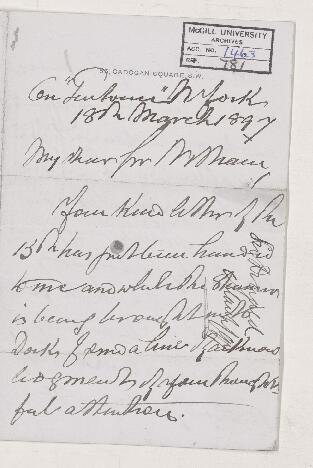 McGILL UNIVERSITY
ARCHIVES
ACC. NO. 1463
REF. 781
CADOGAN SQUARE, S.W.
On "Teutonic" N York
18th March 1897
My dear Sir William,
Your kind letter of the
15th has just been handed
to me and while the Steamer
is being brought into
Dock I send a line of acknow
ledgments of your thought
ful attention.